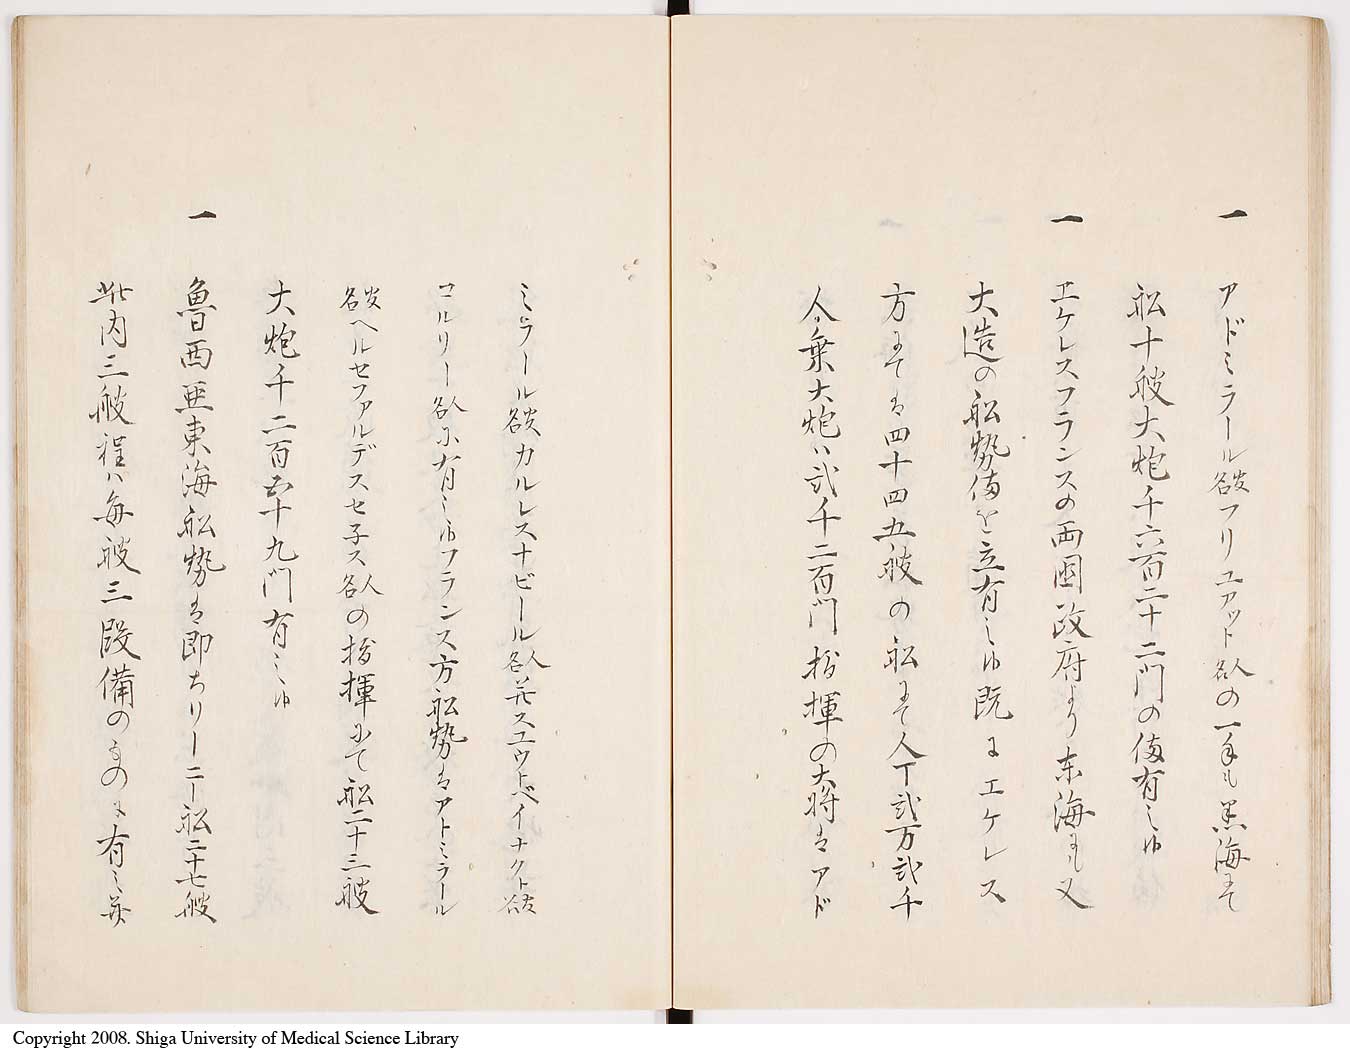 一 アドミラール役名フリユアット人名の一手も黒海にて
船十艘大炮千六百二十二門の備有之候
一 エケレスフランスの両国政府より東海にも又
大造の船勢備を立有之候既にエケレス
方にては四十四五艘の船にて人丁弐万弐千
人乗大炮ハ弐千二百門指揮の大将はアド
ミラール役名カルレスナビール人名并スユウ上ヘイナクト役名
コルリー人名に有之候フランス方船勢はアトミラール
役名ヘルセファルデスセ子ス人名の指揮にて船二十三艘
大炮千二百五十九門有之候
一 魯西亜東海船勢は即ちリーニー船二十七艘
此内三艘程ハ毎艘三段備のものに有之並
Copyright 2008. Shiga University of Medical Science Library